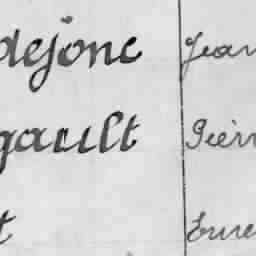 dejonc Jean
gault Pierr
t Ernes